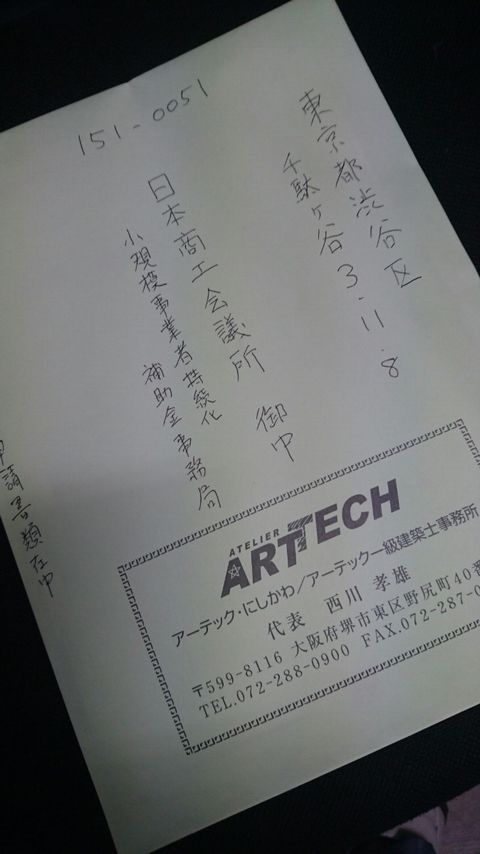 151-0051
東京都渋谷区
千駄ヶ谷3.11.8
日本商工会議所 御中
小規模事業者持続化
補助金事務局
申請書類在中
ATELIER
ARTTECH
アーテック・にしかわ/アーテック一級建築士事務所
代表 西川 孝雄
〒599-8116 大阪府堺市東区野尻町40番
TEL.072-288-0900 FAX.072-287-0